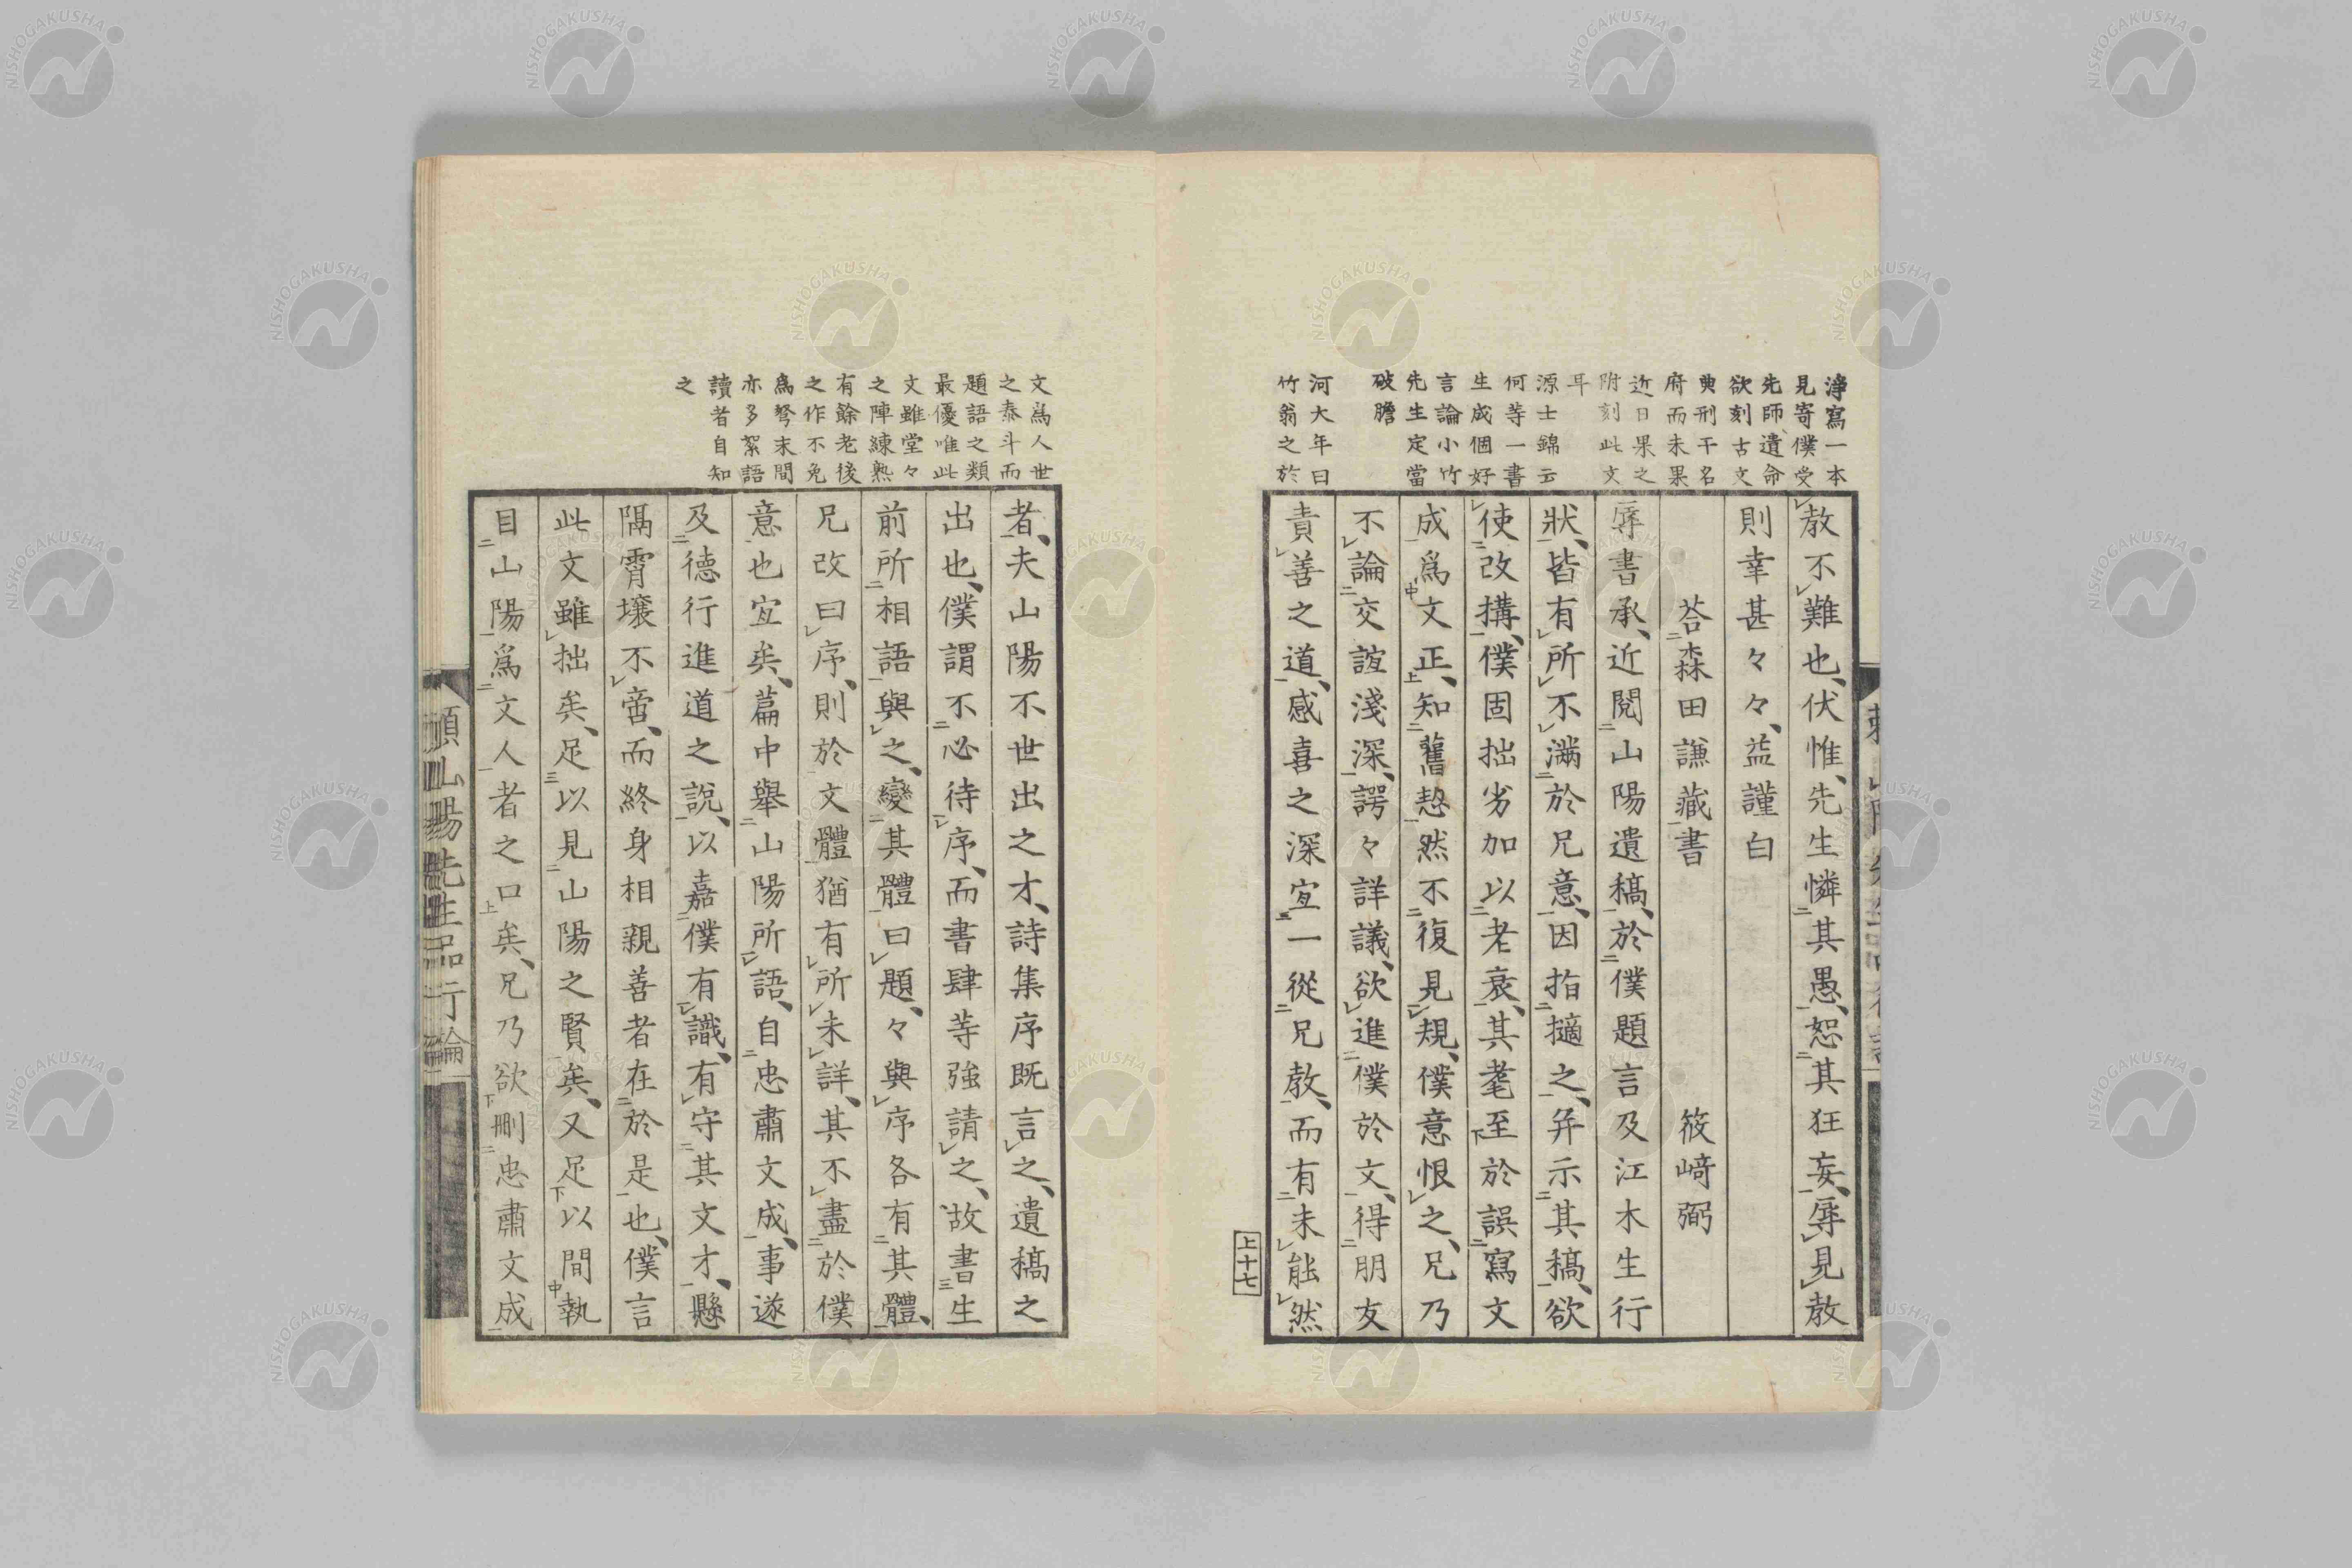 淨寫一本
見寄僕受
先師遺命
欲刻古文
典刑干名
府而未果
近日果之
附刻此文
耳
源士錦云
何等一書
生成個好
言論小竹
先生定當
破膽
河大年曰
竹翁之於
教不難也、伏惟、先生憐其愚、恕其狂妄、辱見教
則幸甚々々、益謹白
荅森田謙藏書 筱﨑弼
辱書承、近閱山陽遺稿、於僕題言及江木生行
狀、皆有所不滿於兄意、因指擿之、幷示其稿、欲
使改搆、僕固拙劣加以老衰、其耄至於誤寫文
成爲文正、知舊愸然不復見規、僕意恨之、兄乃
不論交誼淺深、諤々詳議、欲進僕於文、得朋友
責善之道、感喜之深宜一從兄教、而有未能然
上十七
文爲人世
之泰斗而
題語之類
最優唯此
文雖堂々
之陣練熟
有餘老後
之作不免
爲弩末間
亦多絮語
讀者自知
之
者、夫山陽不世出之才、詩集序既言之、遺稿之
出也、僕謂不必待序、而書肆等強請之、故書生
前所相語與之、變其體曰題、々與序各有其體、
兄改曰序、則於文體猶有所未詳、其不盡於僕
意也宜矣、篇中舉山陽所語、自忠肅文成、事遂
及德行進道之說、以嘉僕有識、有守其文才、懸
隔霄壤不啻、而終身相親善者在於是也、僕言
此文雖拙矣、足以見山陽之賢矣、又足以間執
目山陽爲文人者之口矣、兄乃欲刪忠肅文成
賴山陽先生品行論